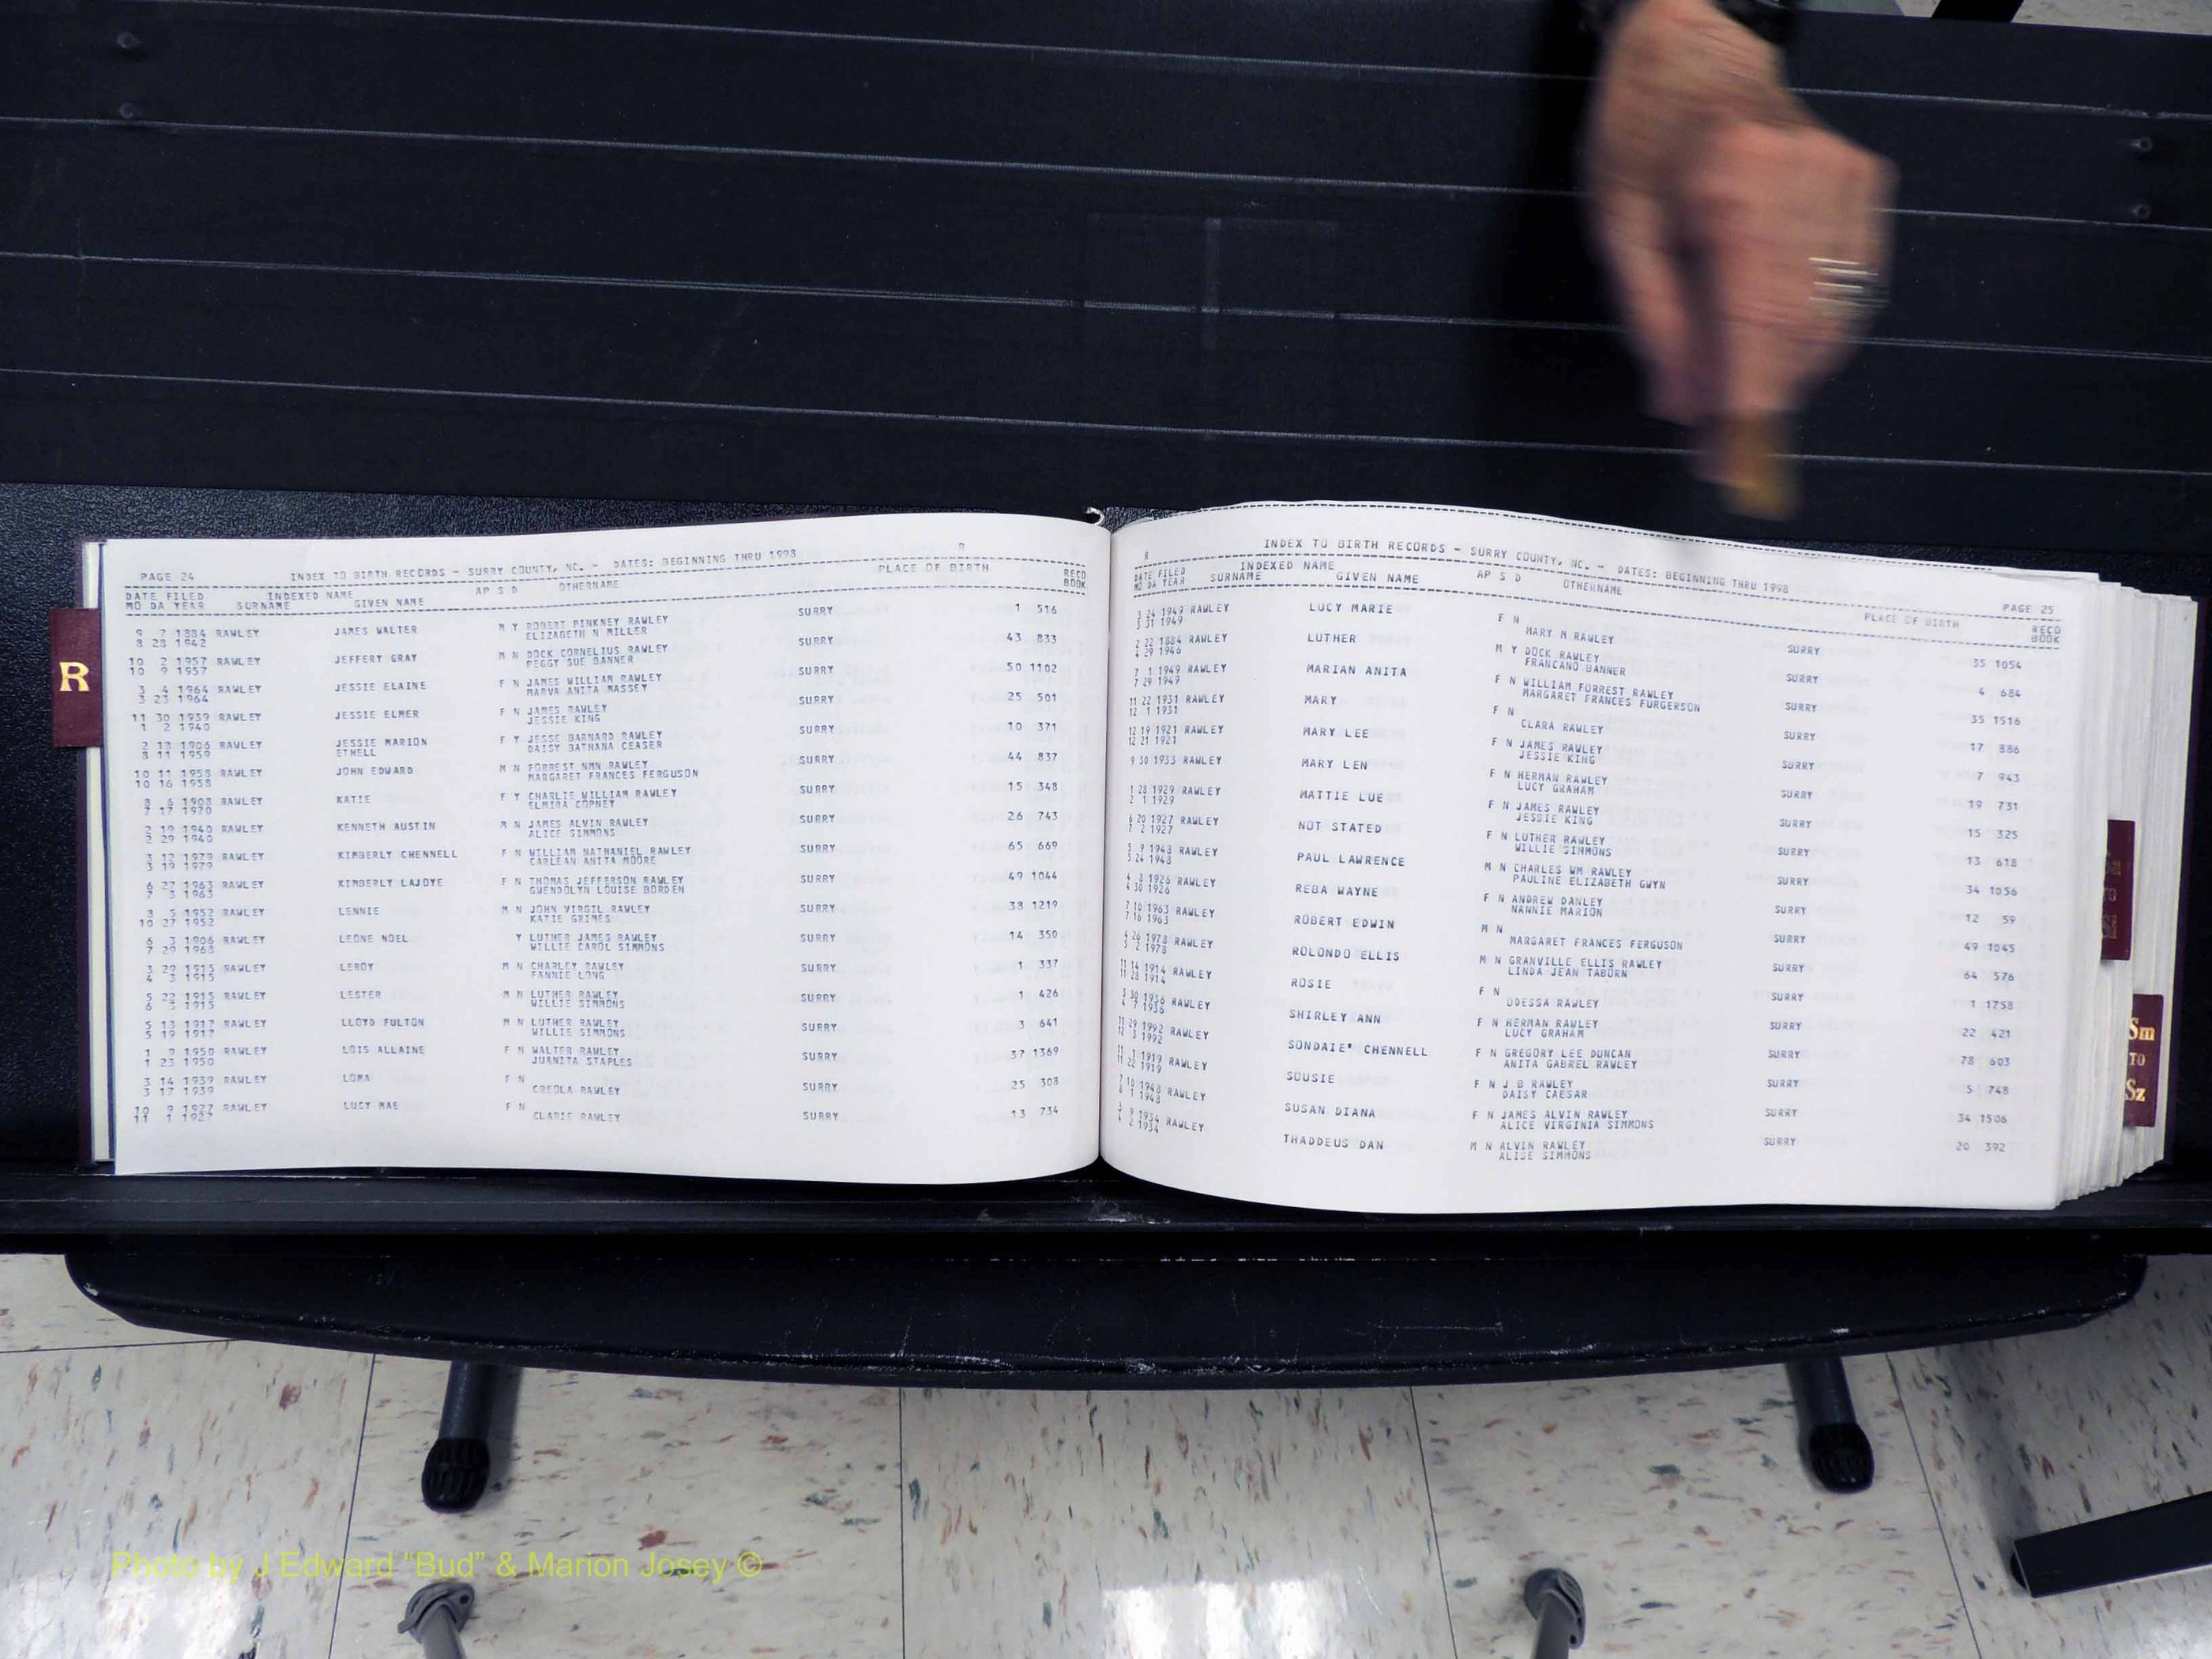 R
PAGE 24 INDEX TO BIRTH RECORDS - SURRY COUNTY, NC. - DATES: BEGINNING THRU 1998 R
DATE FILED INDEXED NAME AP S D OTHERNAME PLACE OF BIRTH RECO
MO DA YEAR SURNAME GIVEN NAME BOOK
9 7 1884 RAWLEY JAMES WALTER M Y ROBERT PINKNEY RAWLEY SURRY 1 516
8 28 1942 ELIZABETH N MILLER
10 2 1957 RAWLEY JEFFERY GRAY M N DOCK CORNELIUS RAWLEY SURRY 43 833
10 9 1957 PEGGY SUE BANNER
3 4 1964 RAWLEY JESSIE ELAINE F N JAMES WILLIAM RAWLEY SURRY 50 1102
3 23 1964 MARVA ANITA MASSEY
11 30 1939 RAWLEY JESSIE ELMER F N JAMES RAWLEY SURRY 25 501
1 2 1940 JESSIE KING
2 18 1906 RAWLEY JESSIE MARION F Y JESSE BARNARD RAWLEY SURRY 10 371
8 11 1959 ETHELL DAISY BATHANA CEASER
10 11 1958 RAWLEY JOHN EDWARD M N FORREST NMN RAWLEY SURRY 44 837
10 16 1958 MARGARET FRANCES FERGUSON
8 6 1908 RAWLEY KATIE F Y CHARLIE WILLIAM RAWLEY SURRY 15 348
7 17 1970 ELMIRA COPNEY
2 19 1940 RAWLEY KENNETH AUSTIN M N JAMES ALVIN RAWLEY SURRY 26 743
2 29 1940 ALICE SIMMONS
3 12 1979 RAWLEY KIMBERLY CHENNELL F N WILLIAM NATHANIEL RAWLEY SURRY 65 669
3 19 1979 CARLEAN ANITA MOORE
6 27 1963 RAWLEY KIMBERLY LAJOYE F N THOMAS JEFFERSON RAWLEY SURRY 49 1044
7 3 1963 GWENDOLYN LOUISE BORDEN
3 5 1952 RAWLEY LENNIE M N JOHN VIRGIL RAWLEY SURRY 38 1219
10 27 1952 KATIE GRIMES
6 3 1906 RAWLEY LEONE NOEL Y LUTHER JAMES RAWLEY SURRY 14 350
7 29 1968 WILLIE CAROL SIMMONS
3 29 1915 RAWLEY LEROY M N CHARLEY RAWLEY SURRY 1 337
4 3 1915 FANNIE LONG
5 22 1915 RAWLEY LESTER M N LUTHER RAWLEY SURRY 1 426
6 3 1915 WILLIE SIMMONS
5 13 1917 RAWLEY LLOYD FULTON M N LUTHER RAWLEY SURRY 3 641
5 19 1917 WILLIE SIMMONS
1 9 1950 RAWLEY LOIS ALLAINE F N WALTER RAWLEY SURRY 37 1369
1 23 1950 JUANITA STAPLES
3 14 1939 RAWLEY LOMA F N SURRY 25 308
3 17 1939 CREOLA RAWLEY
10 9 1927 RAWLEY LUCY MAE F N SURRY 13 734
11 1 1927 CLARIE RAWLEY
R INDEX TO BIRTH RECORDS - SURRY COUNTY, NC. - DATES: BEGINNING THRU 1998 PAGE 25
DATE FILED INDEXED NAME AP S D OTHERNAME PLACE OF BIRTH RECO
MO DA YEAR SURNAME GIVEN NAME BOOK
3 24 1949 RAWLEY LUCY MARIE F N SURRY 35 1054
3 31 1949 MARY N RAWLEY
2 22 1884 RAWLEY LUTHER M Y DOCK RAWLEY SURRY 4 684
4 29 1946 FRANCANO BANNER
7 1 1949 RAWLEY MARIAN ANITA F N WILLIAM FORREST RAWLEY SURRY 35 1516
7 29 1949 MARGARET FRANCES FURGERSON
11 22 1931 RAWLEY MARY F N SURRY 17 886
12 1 1931 CLARA RAWLEY
12 19 1921 RAWLEY MARY LEE F N JAMES RAWLEY SURRY 7 943
12 21 1921 JESSIE KING
9 30 1933 RAWLEY MARY LEN F N HERMAN RAWLEY SURRY 19 731
LUCY GRAHAM
1 28 1929 RAWLEY MATTIE LUE F N JAMES RAWLEY SURRY 15 325
2 1 1929 JESSIE KING
6 20 1927 RAWLEY NOT STATED F N LUTHER RAWLEY SURRY 13 618
7 2 1927 WILLIE SIMMONS
5 9 1948 RAWLEY PAUL LAWRENCE M N CHARLES WM RAWLEY SURRY 34 1056
5 24 1948 PAULINE ELIZABETH GWYN
4 8 1926 RAWLEY REBA WAYNE F N ANDREW DANLEY SURRY 12 59
4 30 1926 NANNIE MARION
7 10 1963 RAWLEY ROBERT EDWIN M N SURRY 49 1045
7 16 1963 MARGARET FRANCES FERGUSON
4 26 1978 RAWLEY ROLONDO ELLIS M N GRANVILLE ELLIS RAWLEY SURRY 64 576
5 2 1978 LINDA JEAN TABORN
11 14 1914 RAWLEY ROSIE F N SURRY 1 1758
11 28 1914 ODESSA RAWLEY
3 30 1936 RAWLEY SHIRLEY ANN F N HERMAN RAWLEY SURRY 22 421
4 7 1936 LUCY GRAHAM
11 29 1992 RAWLEY SONDAIE' CHENNELL F N GREGORY LEE DUNCAN SURRY 78 603
12 3 1992 ANITA GABREL RAWLEY
11 1 1919 RAWLEY SOUSIE F N J B RAWLEY SURRY 5 748
11 22 1919 DAISY CAESAR
7 10 1948 RAWLEY SUSAN DIANA F N JAMES ALVIN RAWLEY SURRY 34 1506
8 1 1948 ALICE VIRGINIA SIMMONS
3 9 1934 RAWLEY THADDEUS DAN M N ALVIN RAWLEY SURRY 20 392
4 2 1934 ALISE SIMMONS
TO
Sm
TO
Sz
Photo by J Edward "Bud" & Marion Josey ©